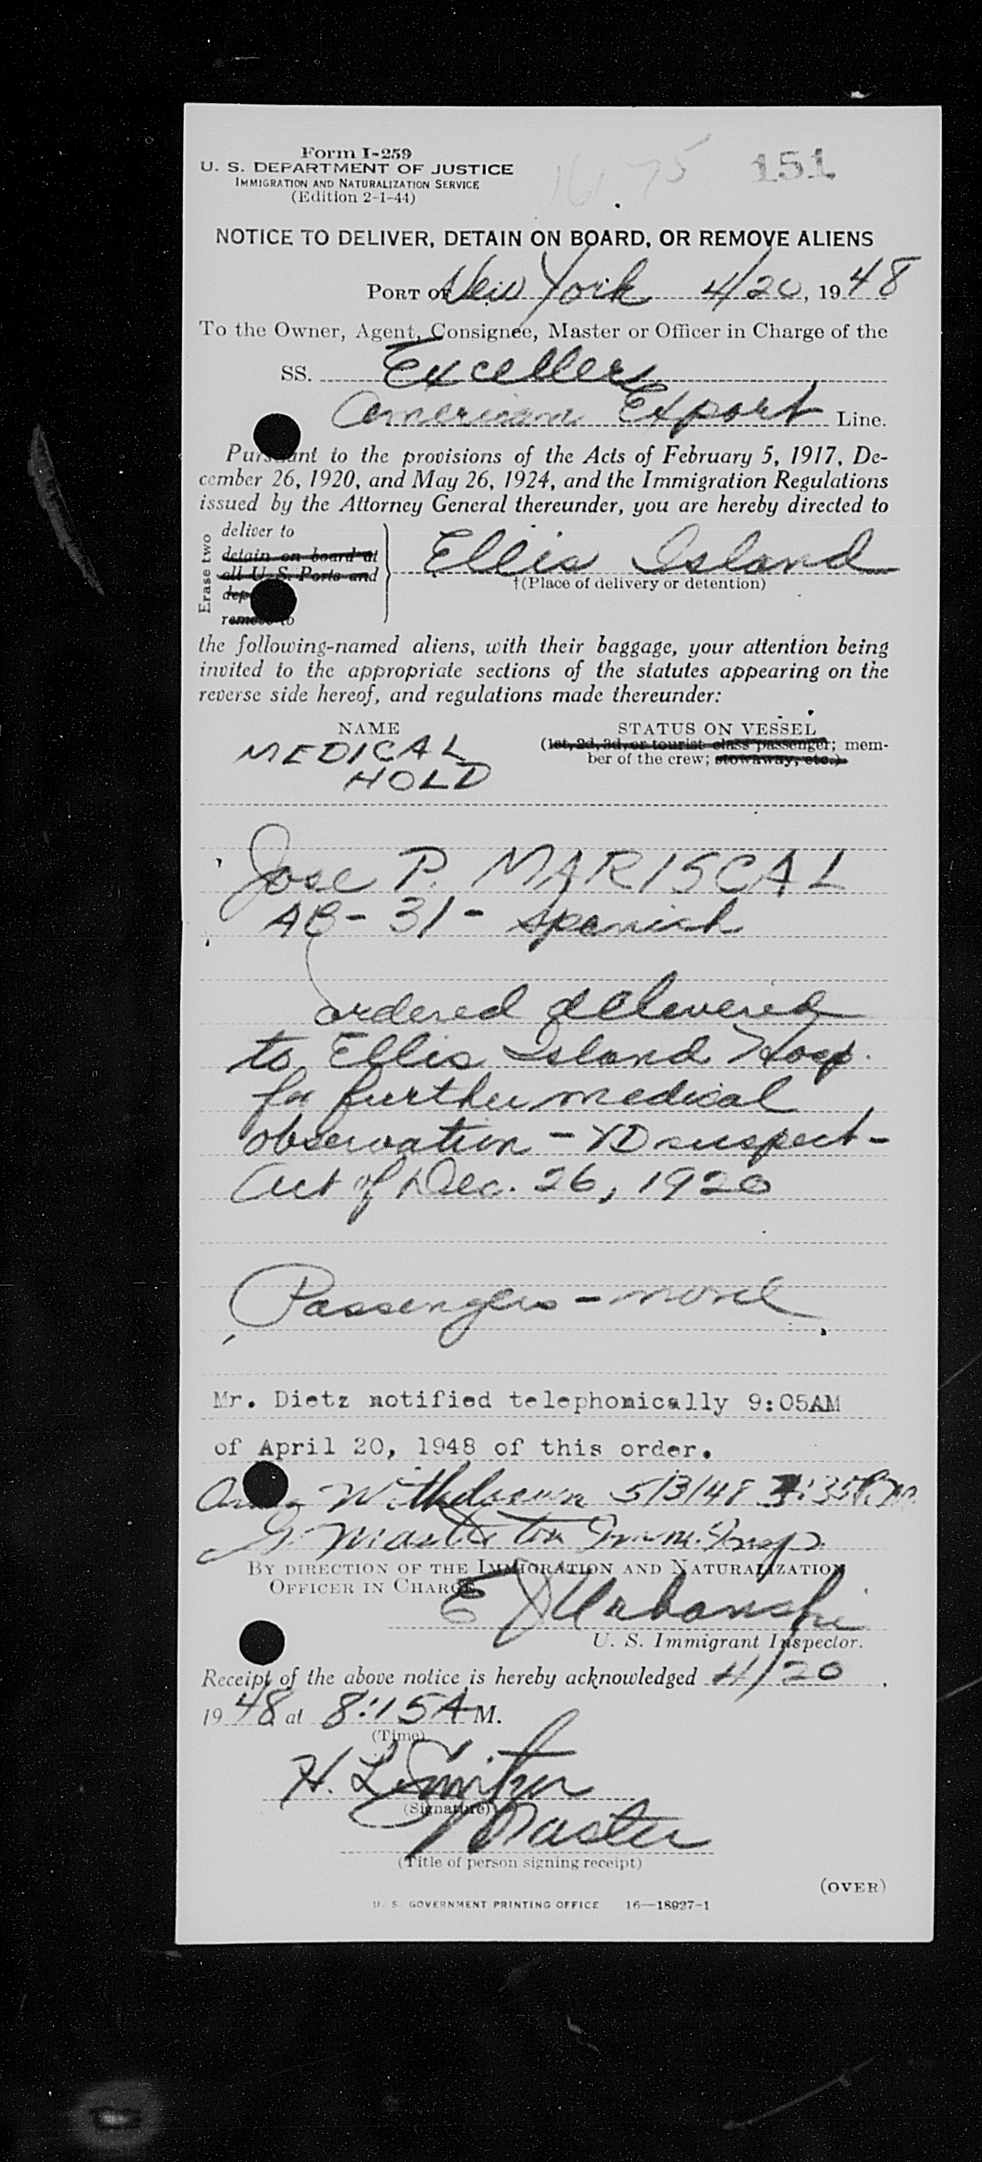 Form I-259
U. S. DEPARTMENT OF JUSTICE
IMMIGRATION AND NATURALIZATION SERVICE
(Edition 2-1-44)
1675 151
NOTICE TO DELIVER, DETAIN ON BOARD, OR REMOVE ALIENS
PORT OF New York 4/20, 1948
To the Owner, Agent, Consignee, Master or Officer in Charge of the
SS. Exceller
American Export Line.
Pursuant to the provisions of the Acts of February 5, 1917, De-
cember 26, 1920, and May 26, 1924, and the Immigration Regulations
issued by the Attorney General thereunder, you are hereby directed to
Erase two
deliver to
detain on board at
all U. S. Ports and
dep
remove to
Ellis Island
†(Place of delivery or detention)
the following-named aliens, with their baggage, your attention being
invited to the appropriate sections of the statutes appearing on the
reverse side hereof, and regulations made thereunder:
NAME STATUS ON VESSEL
(1st, 2d, 3d, or tourist class passenger; mem-
ber of the crew; stowaway, etc.)
MEDICAL
HOLD
Jose P. MARISCAL
AB - 31 - Spanish
ordered delivered
to Ellis Island Hosp.
for further medical
observation - VD suspect -
Act of Dec. 26, 1920
Passengers - none
Mr. Dietz notified telephonically 9:05AM
of April 20, 1948 of this order.
Withdrawn 5/3/48 3:35 P.M.
G. Masterton Imm. Insp.
BY DIRECTION OF THE IMMIGRATION AND NATURALIZATION
OFFICER IN CHARGE
E J Urbanski
U. S. Immigrant Inspector.
Receipt of the above notice is hereby acknowledged 4/20,
1948 at 8:15 A M.
(Time)
H. L.
(Signature)
Master
(Title of person signing receipt)
(OVER)
U. S. GOVERNMENT PRINTING OFFICE 16—18927-1